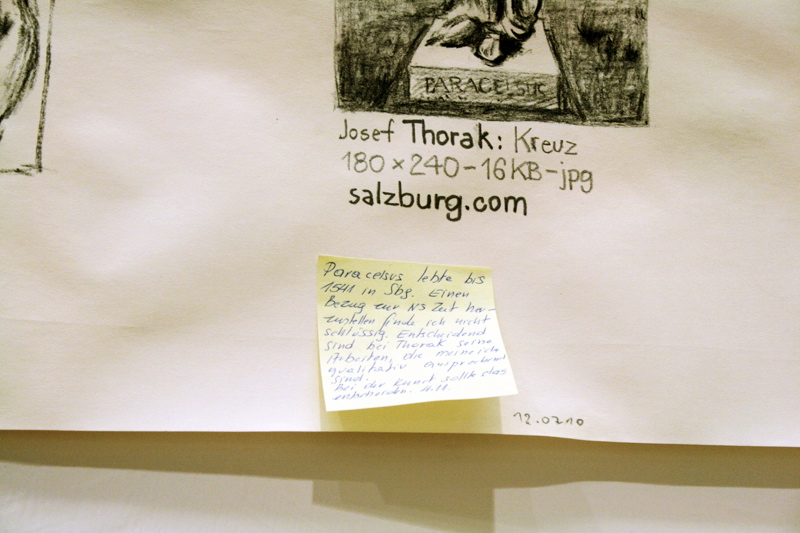 PARACELSUS
Josef Thorak: Kreuz
180×240-16KB-jpg
salzburg.com
Paracelsus lebte bis
1541 in Sbg. Einen
Bezug zur NS Zeit her-
zustellen finde ich nicht
schlüssig. Entscheidend
sind bei Thorak seine
Arbeiten, die meine ich
qualitativ ansprechend
sind.
Bei der Kunst sollte das
entscheiden.
12.0210